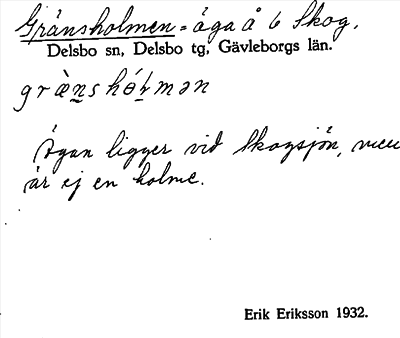 Gränsholmen = äga å 6 Skog.
Delsbo sn, Delsbo tg, Gävleborgs län.
græ̀ns hól̥mən
Ägan ligger vid Skogsjön, men
är ej en holme.
Erik Eriksson 1932.